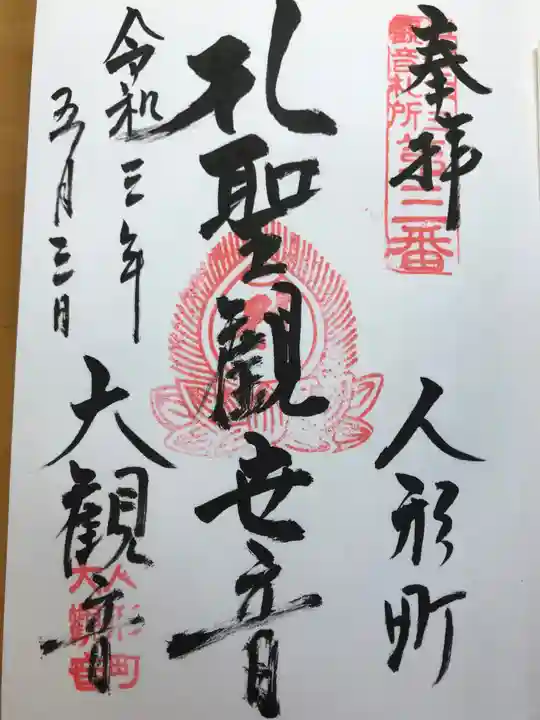 奉拝
人形町
札聖観世音
令和三年
五月三日
大観音
観音札所
第三番
人形町
大観音